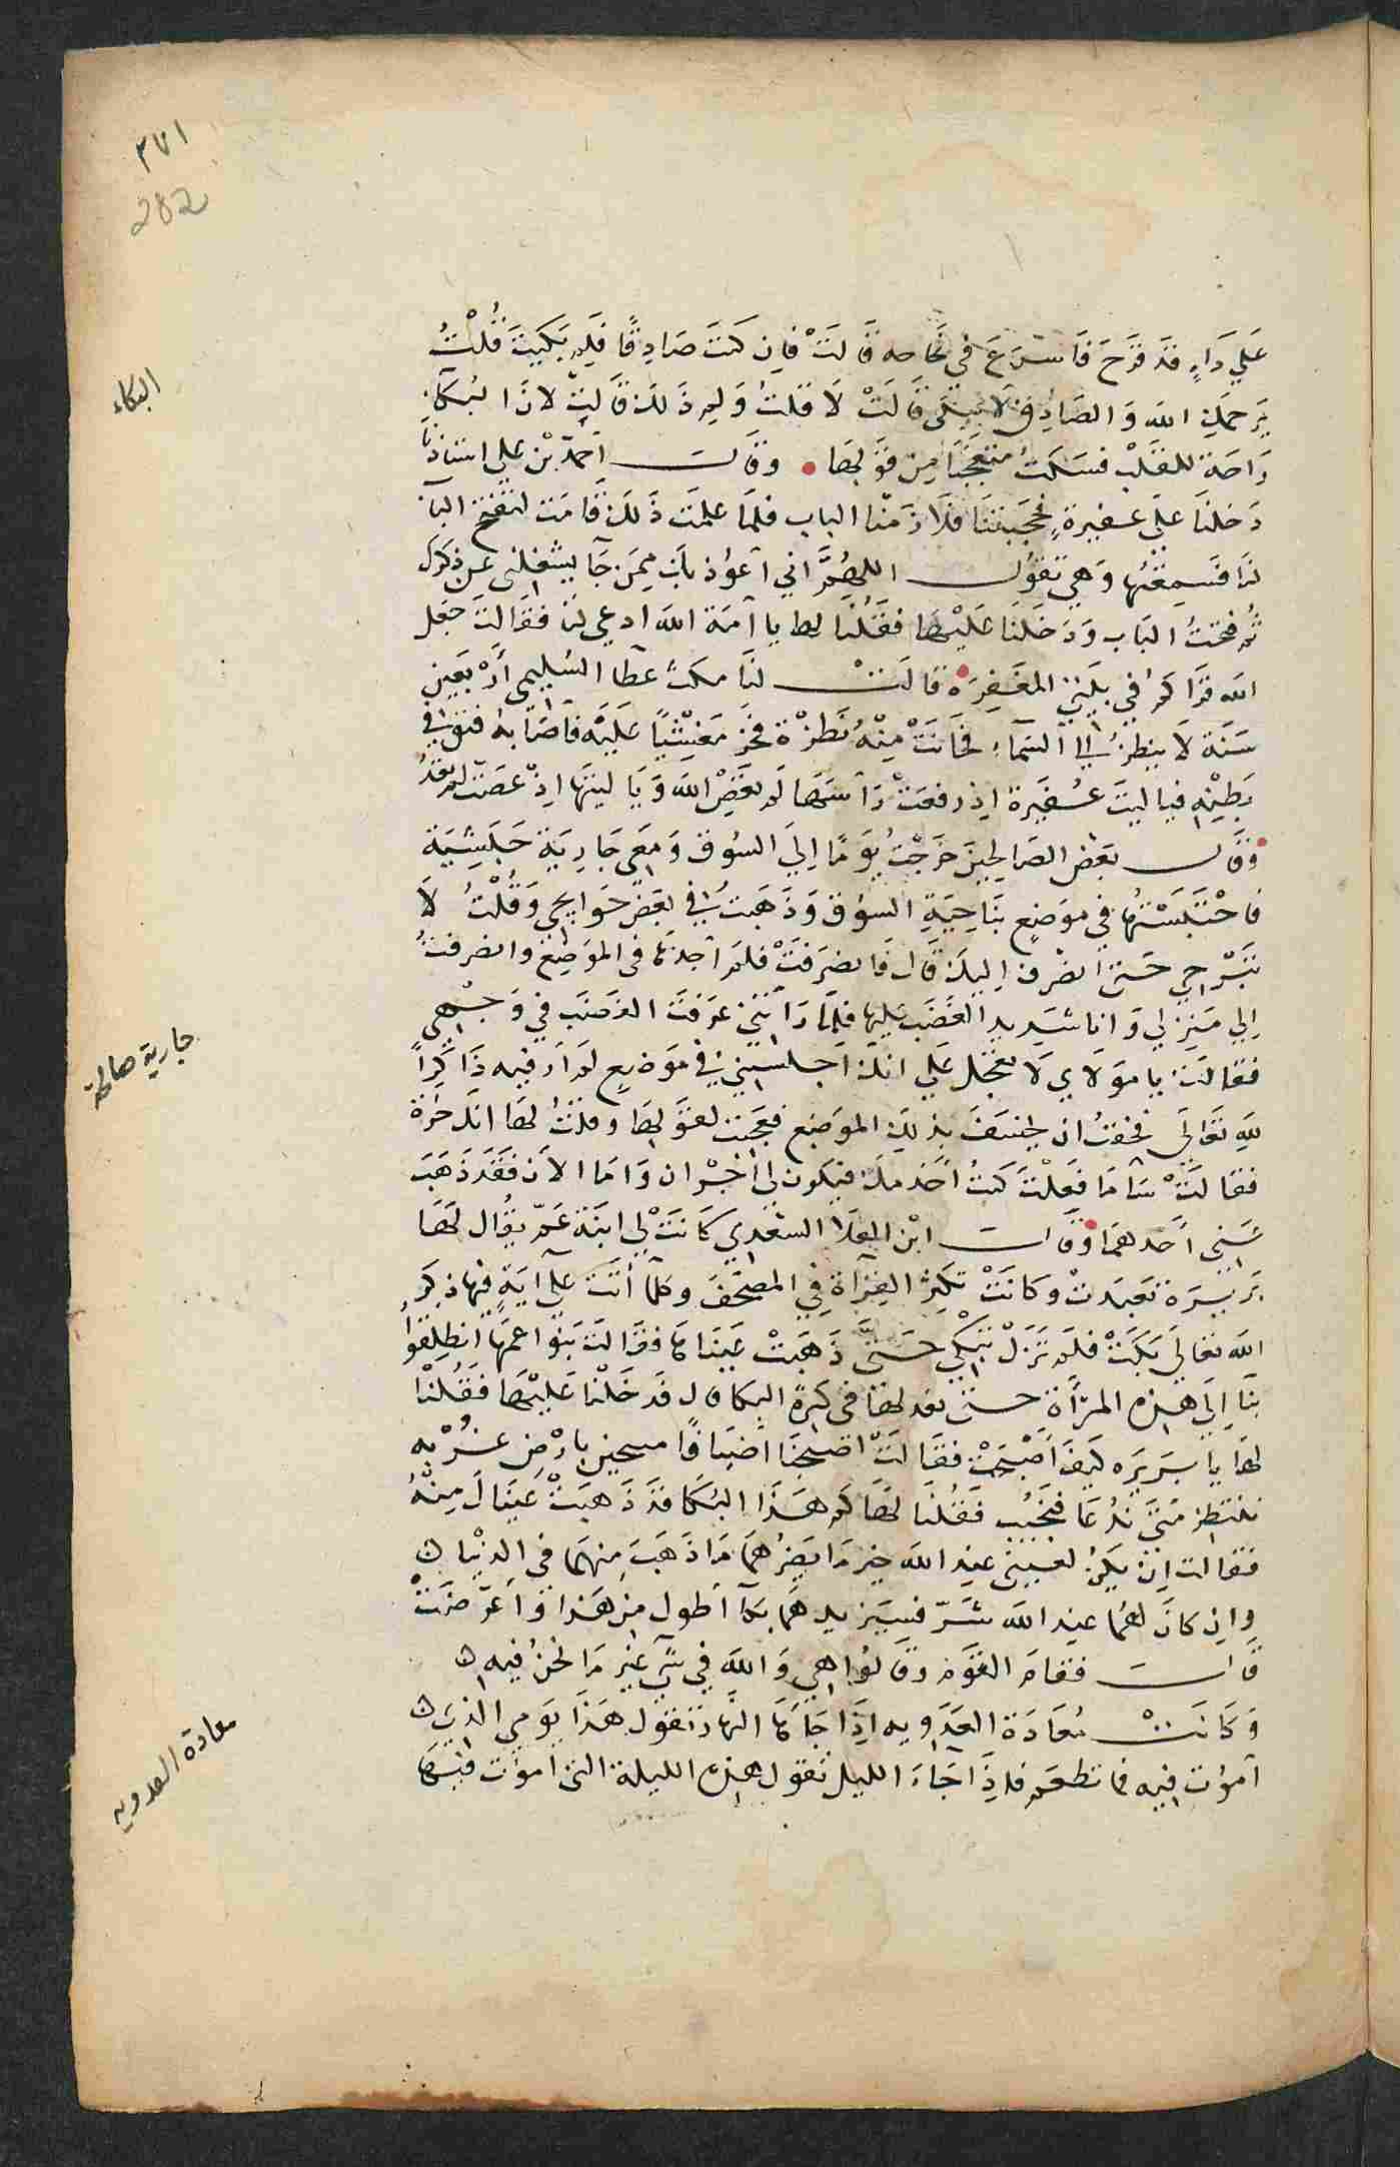 ٣٧١
282
علي دَاءٍ قد قرح فاسرع في نجاحه قَالَتْ فان كنتَ صَادِقًا فَلِمَ بَكَيتَ قُلتُ
البكاء
يَرحمكِ الله وَالصَادِق لا يبكي قَالَتْ لا قلتُ وَلِمَ ذلك قَالتْ لانَّ البُكآء
رَاحة للقَلْب فسَكتُ متعجّبًا مِنْ قَولهَا • وقَالَ احمد بْن علي استاذنّا
دَخلنَا علي عفيرةٍ فحجبتنَا فلازمنا الباب فلمَا علمَت ذَلكَ قَامَت لتفتح الباب
لنا فسَمعتُها وَهي تقُول اللهُمَّ اني اعُوذ بك ممن جَا يشغلني عن ذكرك
ثم فتحتُ البَاب وَدَخلنَا عَليْهَا فقُلنَا لها يا امَة الله ادعي لنا فقَالت جَعل
الله قراكم في بَيتي المغفِرَة قالَتْ لنَا مكثَ عطا السُليمي أرْبَعين
سَنة لا ينظرُ الي السَمآء فحَانَتْ مِنْهُ نَظرْة فخرّ مَغشيًّا عَلَيْه فاصَابهُ فتق في
بَطنِه فيا ليتَ عُفَيرة اذ رفعَتْ رَاسَهَا لم تعَصْ الله وَيَا ليتَها اذْ عصَتْ لم تعُدْ
وقَال بعض الصَالحينَ خرَجْتُ يَومًا اِلَي السُوق وَمعي جَارِيَة حَبَشيّة
فاحْتَبَسْتُها في موَضعٍ بنَاحِيَةِ السوُق وَذَهَبتُ في بَعض حَوَايجي وَقُلْتُ لَا
تَبْرحي حَتي انصَرف اليكِ قَالَ فانصَرَفَتْ فلم اجدهَا في الموَضِع وانصَرفتُ
جارية صالحة
الي مَنزِلي وَانا شَديد الغَضَب عليها فلمَّا رَاتني عَرفَت الغَضَبَ في وَجْهي
فقالت يا موَلاي لَا تعجَل علي انك اجلستني في موَضعٍ لم ار فيه ذَاكرًا
لله تعَالَي فخفتُ ان يخسَفَ بذلك الموَضع فعَجبتُ لقَولهَا وقلتُ لهَا انتَ حُرَّة
فقالتْ سَآمَا فعَلتَ كنتُ اخدمك فيكون لي اجْران وَامَا الانَ فقد ذَهَبَ
عَني احَدهمَا وقَالَ ابْن العَلا السَعدي كَانَتْ لي ابنَة عَمّ يقُال لَهَا
بَريرَة تعَبدَتْ وكانَتْ تكثر القِرآة فِي المصْحَف وكلما أتَتْ علي ايَةٍ فيهَا ذكر
الله تعَالي بَكَتْ فلَم تزَلْ تَبْكي حتي ذَهَبتْ عَينَاهَا فقَالتَ بَنُوا عمهَا انطلِقوُا
بنَا اِلَي هَذِه المرْأة حتي نعذلهَا في كثرة البكا قال فدَخلنا عَليْهَا فقُلنا
لهَا يا بَريرَه كَيفَ أصْبَحْتِ فقَالتْ اصْبحنَا اضيَافًا مسحين بارْضِ غُرْبه
ننتظر مَتي ندُعَا فنُجيْب فقُلنَا لهَا كم هَذَا البُكَا قد ذَهبَتْ عَينَاك مِنْهُ
فقالت اِن يَكنْ لعَيني عند الله خير مَا يضرُهمَا مَا ذهَبَ مِنهمَا في الدنيا ن
وان كَانَ لهُمَا عند الله شرّ فسَيزيدهمَا بكآ اطول من هَذا وَاَعرَضَتْ
قالَ فقامَ القوَم وقَالُوا هي وَالله في شيّ غير مَا نحنُ فيه ن
وَكَانَتْ معَادَة العَدَويه اذَا جَاهَا النَّهَار تقوُل هَذا يَومي الذي ن
معادة العدويه
اموُت فيه فما تطعَم فاذَا جَاءَ الليل تقول هذه الليلة التي اموُت فيهَا